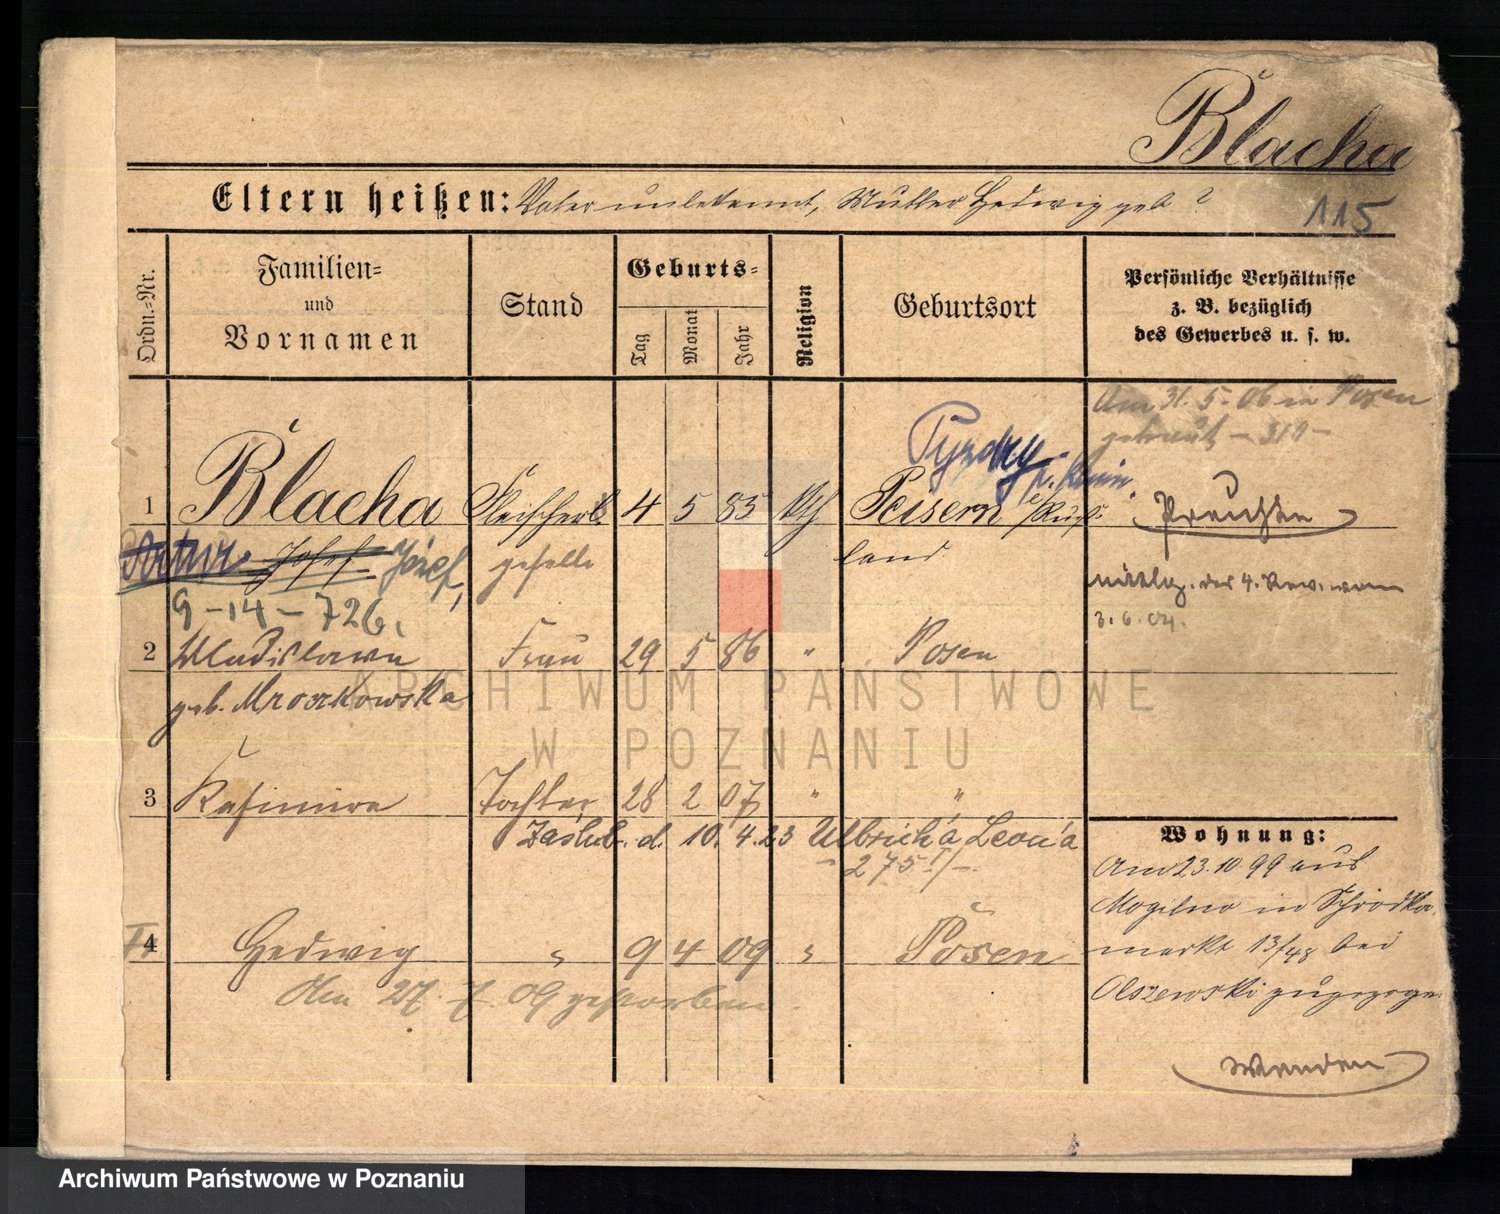 Blacha
Eltern heißen: Vater unbekannt, Mutter Hedwig geb ?
115
Ordn.-Nr.
Familien-
und
Vornamen
Stand
Geburts-
Tag
Monat
Jahr
Religion
Geburtsort
Persönliche Verhältnisse
z. B. bezüglich
des Gewerbes u. s. w.
Am 31. 5. 06 in Posen
getraut - 311 -
Pyzdry
1 Blacha Fleischer 4 5 85 kth Peisern /Ruß-
Artur Josef Józef, geselle land
9-14-726.
Mittlg. der 4. Rev. vom
3. 6. 04.
2 Wladislawa Frau 29 5 86 " Posen
geb. Mroczkowska
3 Kasimira Tochter 28 2 07 " "
Zaślub. d. 10. 4. 23 Ulbrich'a Leon'a
275
Wohnung:
Am 23. 10. 99 aus
Mogilno in Schrodka
markt 13/48 bei
Olszewski zugezogen
4 Hedwig " 9 4 09 " Posen
Am 27. 7. 09 gestorben.
ARCHIWUM PAŃSTWOWE
W POZNANIU
Archiwum Państwowe w Poznaniu